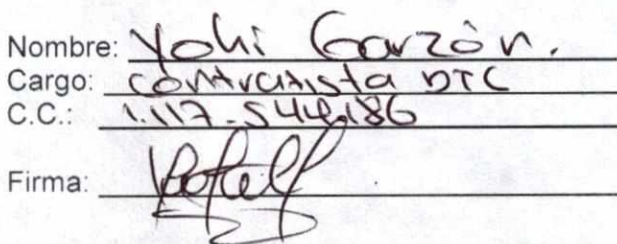 Nombre: Yohi Garzòn.
Cargo: contratista DTC
C.C.: 1.117-544,186
Firma: